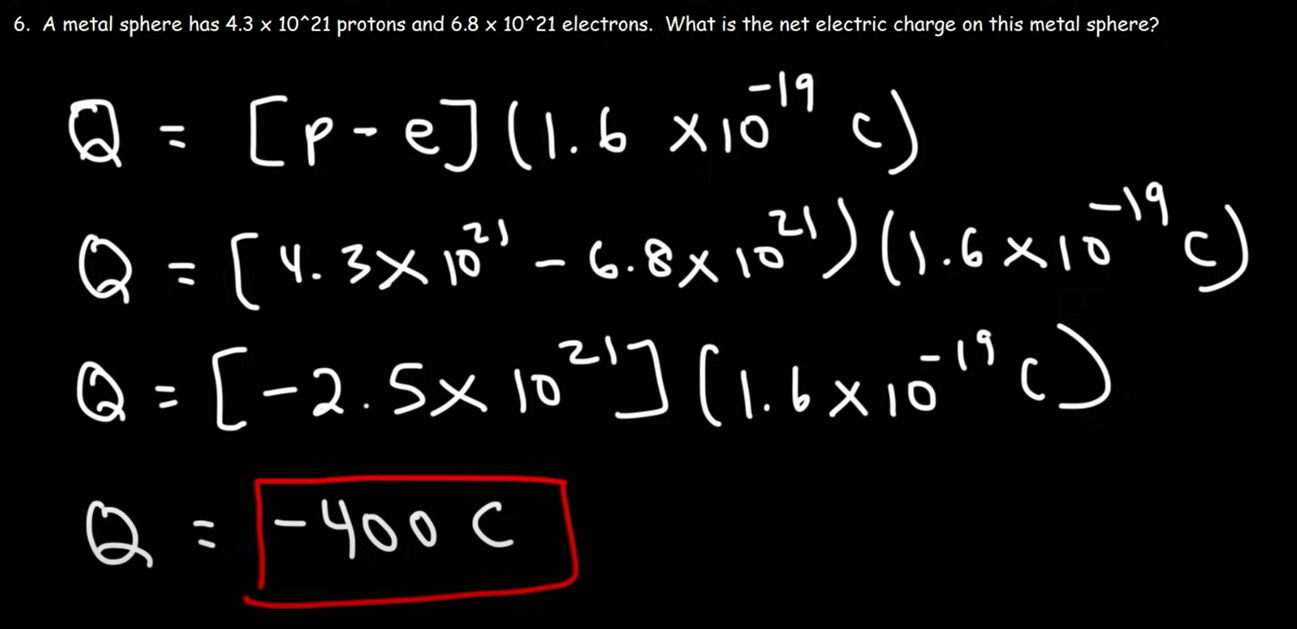 6. A metal sphere has 4.3 x 10^21 protons and 6.8 x 10^21 electrons. What is the net electric charge on this metal sphere?
Q = [p - e] (1.6 x10⁻¹⁹ C)
Q = [4.3x10²¹ - 6.8x10²¹) (1.6x10⁻¹⁹ C)
Q = [-2.5x10²¹] (1.6x10⁻¹⁹ C)
Q = -400 C